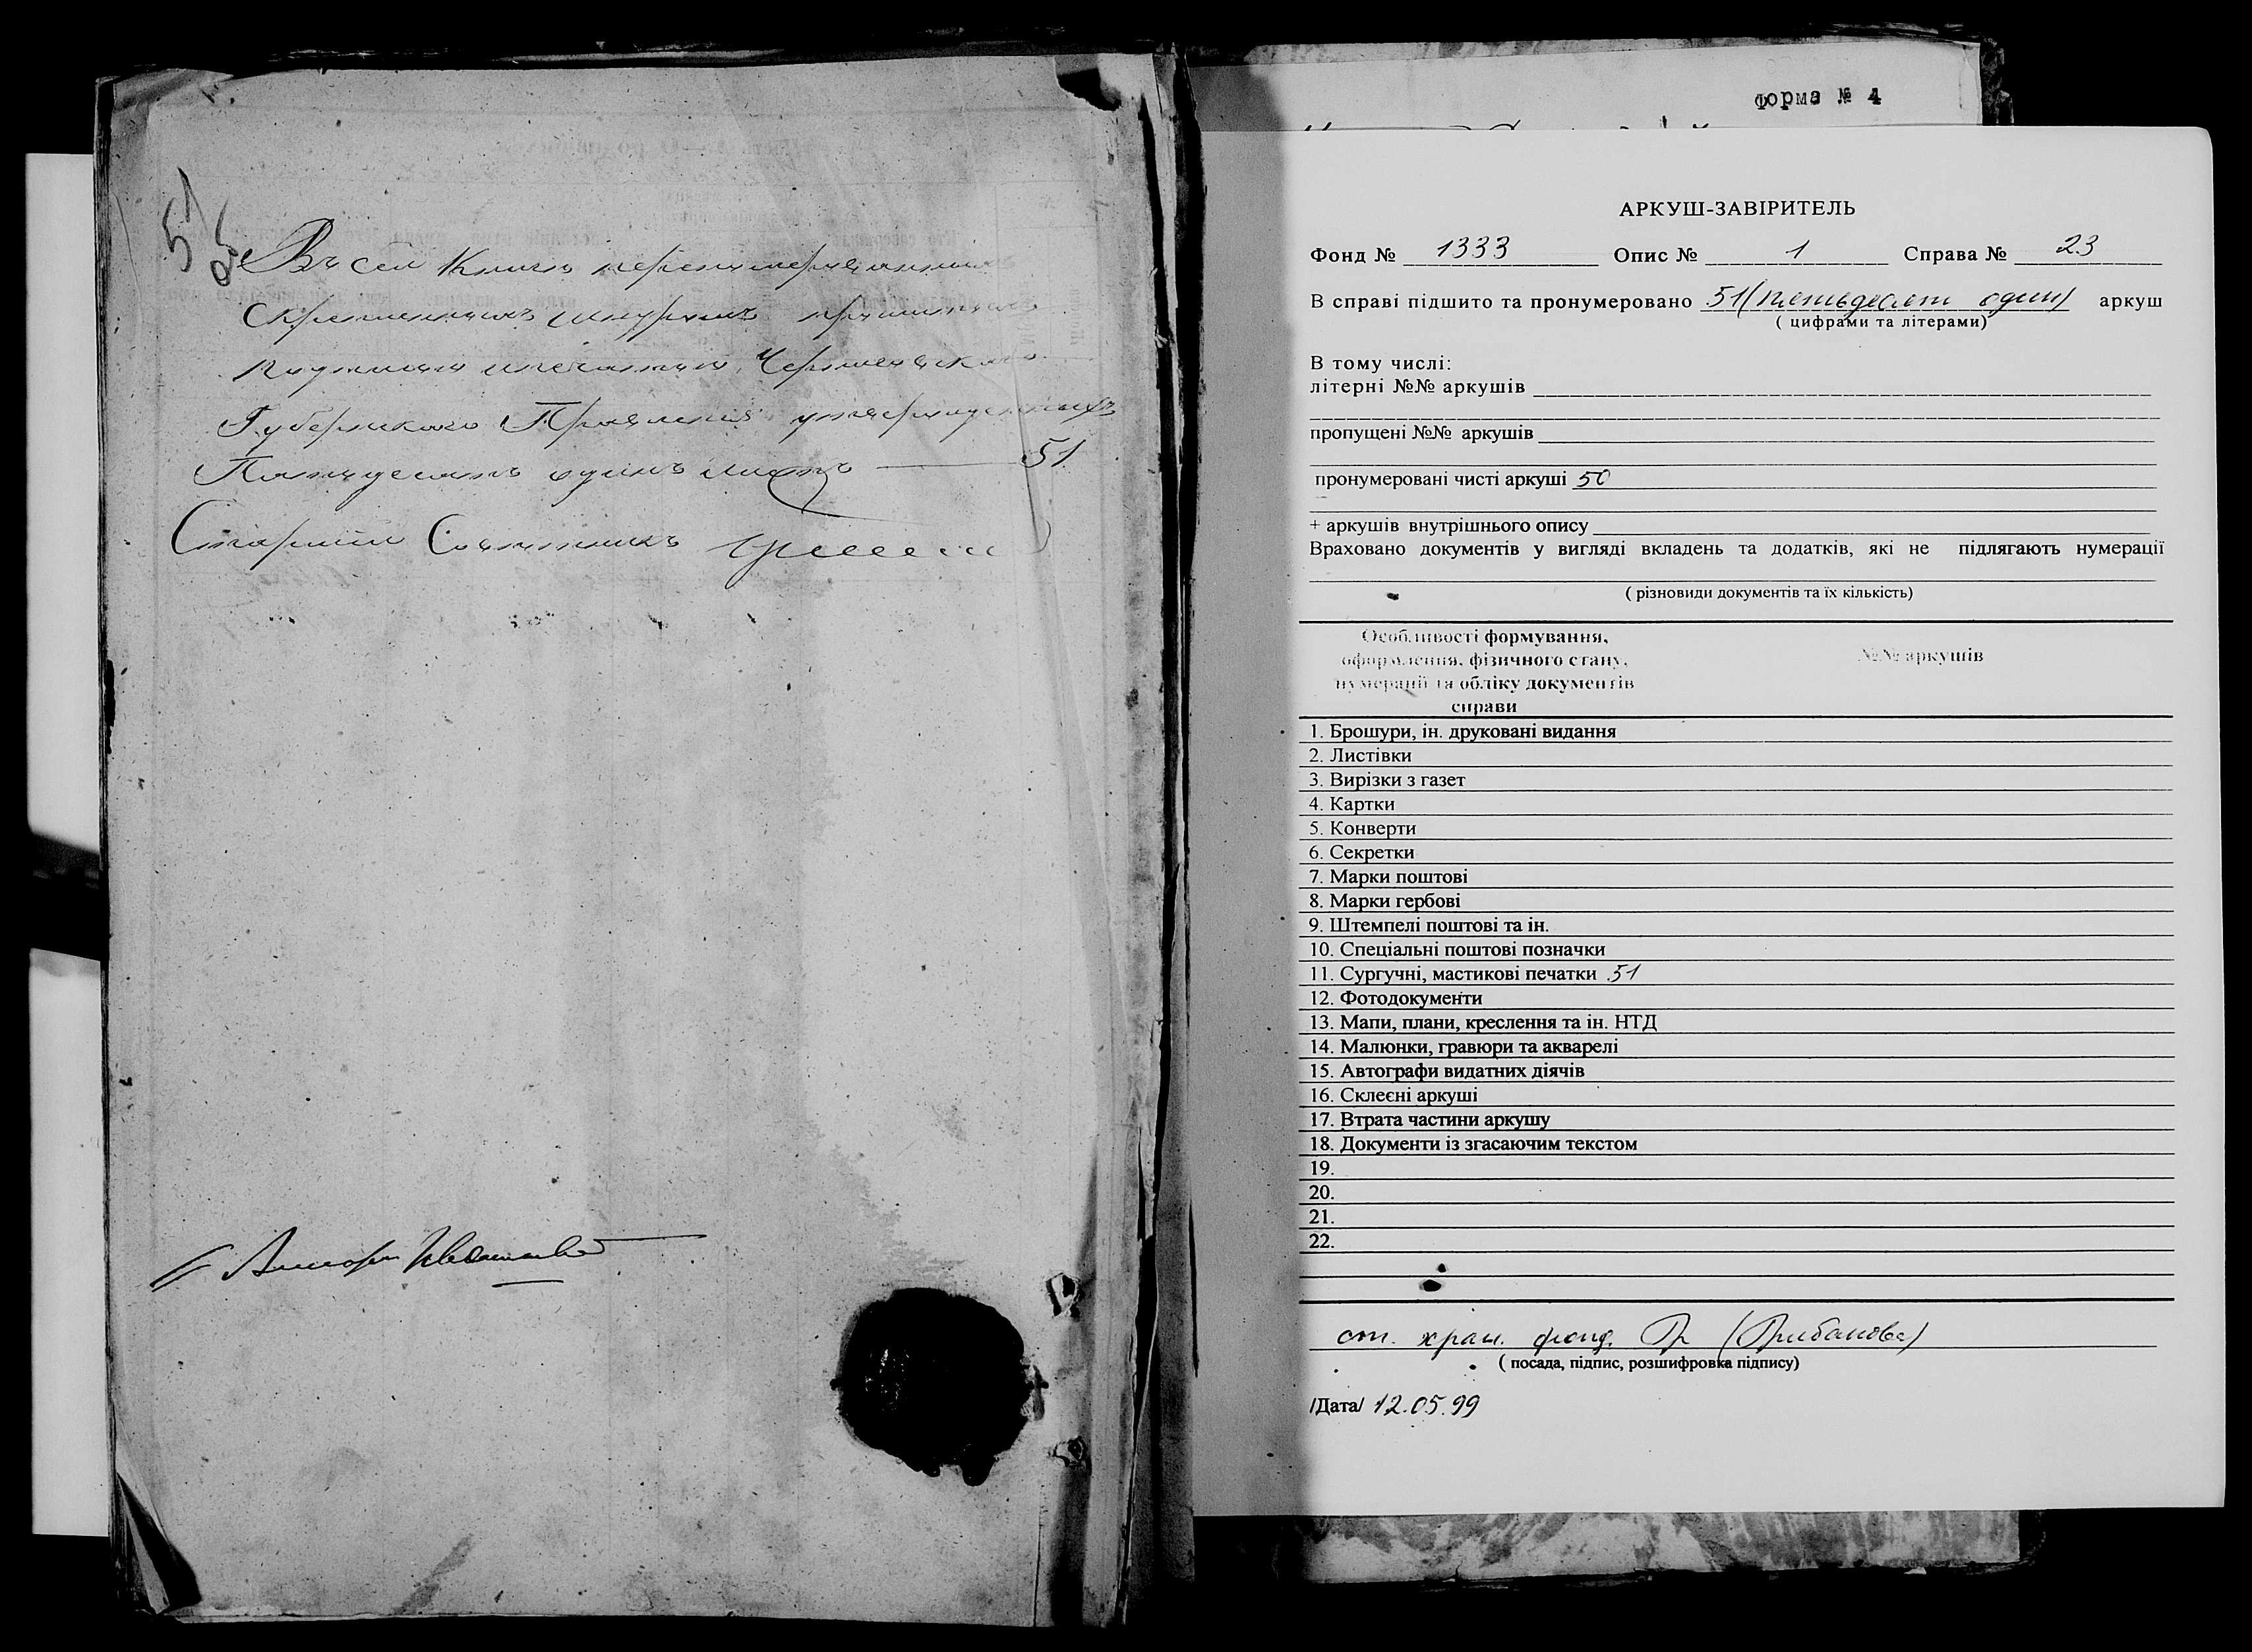 51
об
Въ сей Книгѣ перенумерованныхъ
Скрѣпленныхъ шнуромъ
печатью Черниговскаго
Губернскаго Правленія утвержденныхъ
Пятьдесятъ одинъ листъ — 51
Старшій Совѣтникъ
форма № 4
АРКУШ-ЗАВІРИТЕЛЬ
Фонд № 1333 Опис № 1 Справа № 23
В справі підшито та пронумеровано 51 (пятьдесят один) аркуш
( цифрами та літерами)
В тому числі:
літерні №№ аркушів
пропущені №№ аркушів
пронумеровані чисті аркуші 50
+ аркушів внутрішнього опису
Враховано документів у вигляді вкладень та додатків, які не підлягають нумерації
( різновиди документів та їх кількість)
Особливості формування,
оформлення, фізичного стану,
нумерації та обліку документів
справи
№№ аркушів
1. Брошури, ін. друковані видання
2. Листівки
3. Вирізки з газет
4. Картки
5. Конверти
6. Секретки
7. Марки поштові
8. Марки гербові
9. Штемпелі поштові та ін.
10. Спеціальні поштові позначки
11. Сургучні, мастикові печатки 51
12. Фотодокументи
13. Мапи, плани, креслення та ін. НТД
14. Малюнки, гравюри та акварелі
15. Автографи видатних діячів
16. Склеєні аркуші
17. Втрата частини аркушу
18. Документи із згасаючим текстом
19.
20.
21.
22.
ст. хран. фонд.
( посада, підпис, розшифровка підпису)
/Дата/ 12.05.99